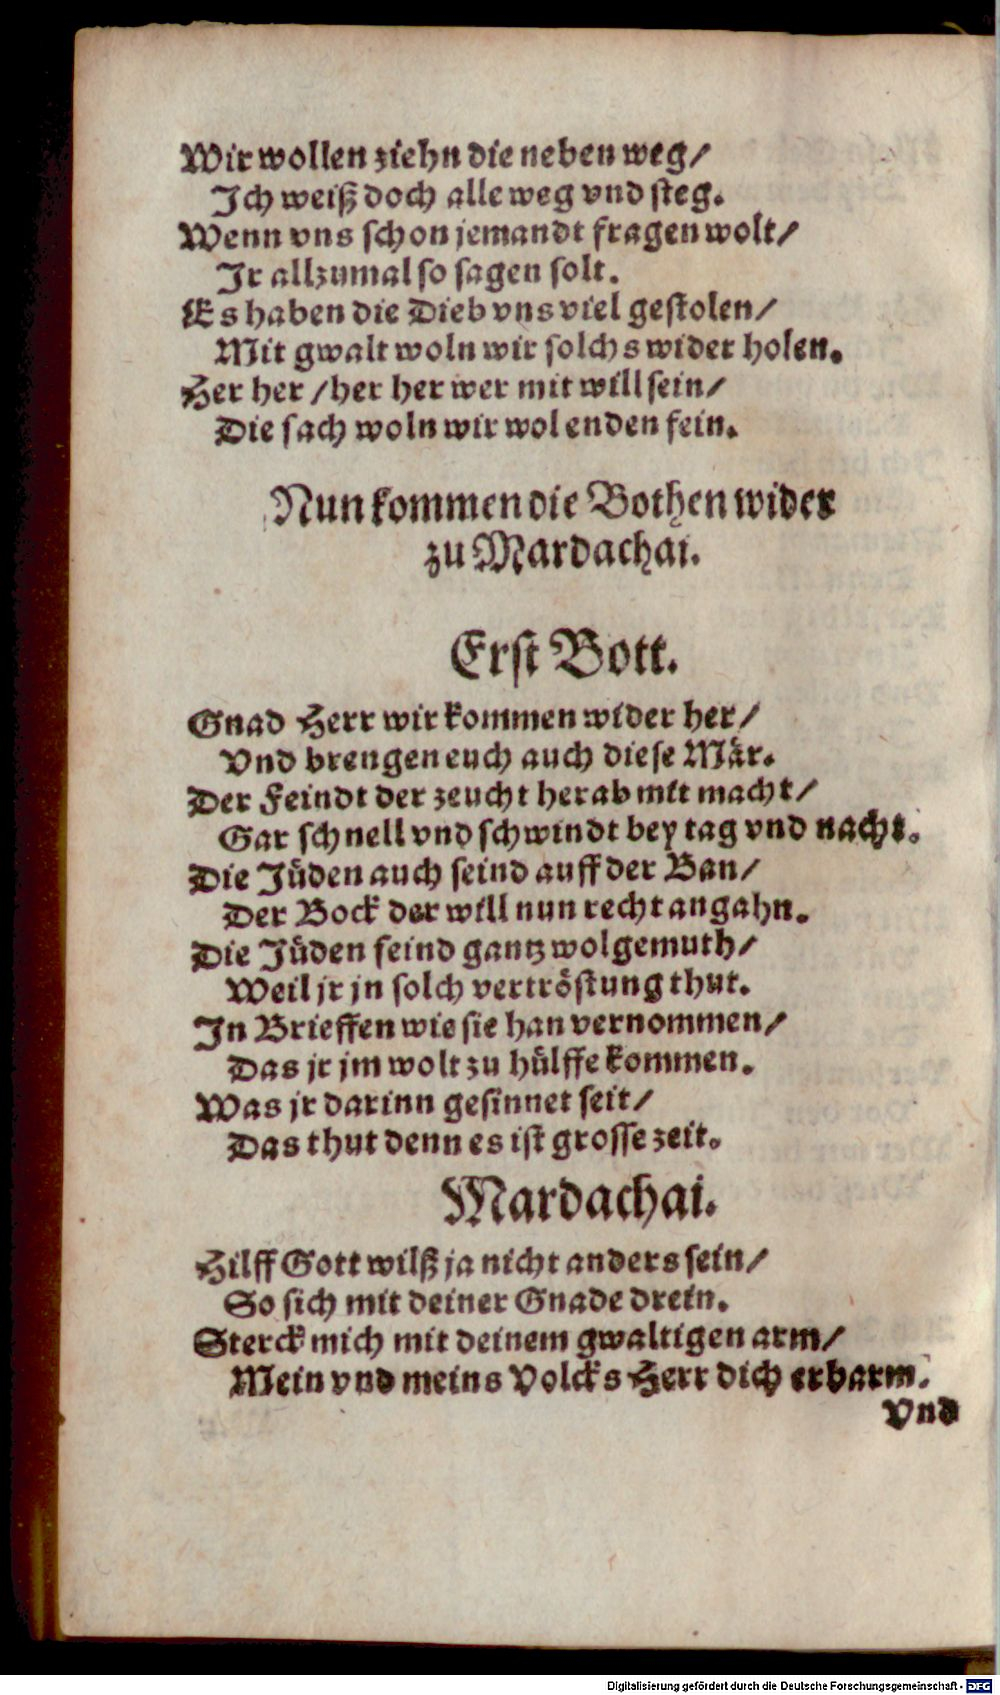 Wir wollen ziehn die neben weg/
Ich weiß doch alle weg vnd steg.
Wenn vns schon jemandt fragen wolt/
Ir allzumal so sagen solt.
Es haben die Dieb vns viel gestolen/
Mit gwalt woln wir solchs wider holen.
Her her / her her wer mit will sein/
Die sach woln wir wol enden fein.
Nun kommen die Bothen wider
zu Mardachai.
Erst Bott.
Gnad Herr wir kommen wider her/
Vnd brengen euch auch diese Mär.
Der Feindt der zeucht herab mit macht/
Gar schnell vnd schwindt bey tag vnd nacht.
Die Jüden auch seind auff der Ban/
Der Bock der will nun recht angahn.
Die Jüden seind gantz wolgemuth/
Weil jr jn solch vertröstung thut.
In Brieffen wie sie han vernommen/
Das jr jm wolt zu hülffe kommen.
Was jr darinn gesinnet seit/
Das thut denn es ist grosse zeit.
Mardachai.
Hilff Gott wilß ja nicht anders sein/
So sich mit deiner Gnade drein.
Sterck mich mit deinem gwaltigen arm/
Mein vnd meins Volcks Herr dich erbarm.
Vnd
Digitalisierung gefördert durch die Deutsche Forschungsgemeinschaft - DFG